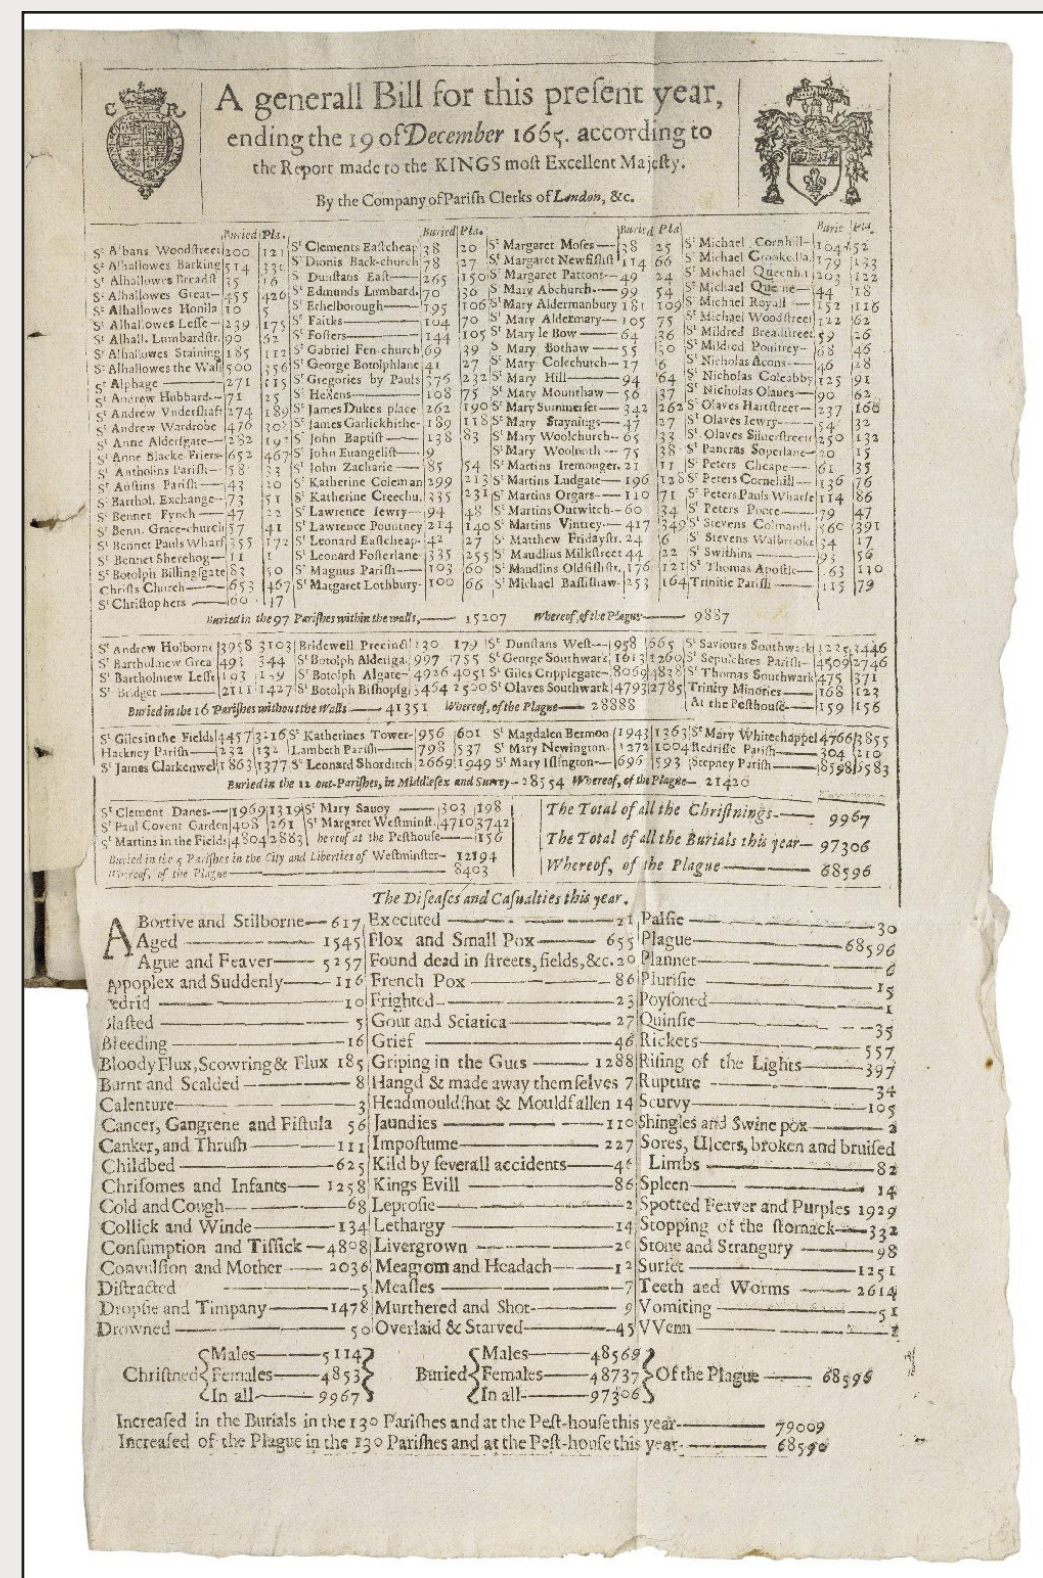 C R
A generall Bill for this preſent year,
ending the 19 of December 1665. according to
the Report made to the KINGS moſt Excellent Majeſty.
By the Company of Pariſh Clerks of London, &c.
Buried Pla.
St Albans Woodſtreet 200 121
St Alhallowes Barking 514 330
St Alhallowes Breadſt 35 16
St Alhallowes Great 455 426
St Alhallowes Honila 10 5
St Alhallowes Leſſe 239 175
St Alhall. Lumbardſtr. 90 62
St Alhallowes Staining 185 112
St Alhallowes the Wall 500 356
St Alphage 271 115
St Andrew Hubbard 71 25
St Andrew Vnderſhaft 274 189
St Andrew Wardrobe 476
St Anne Alderſgate 282
St Anne Blacke-Friers 652 467
St Antholins Pariſh 58 33
St Auſtins Pariſh 43 20
St Barthol. Exchange 73 51
St Bennet Fynch 47 22
St Benn. Grace-church 57 41
St Bennet Pauls Wharf 355 172
St Bennet Sherehog 11 1
St Botolph Billingſgate 83 50
Chriſts Church 653 467
St Chriſtophers 60 47
Buried Pla.
St Clements Eaſtcheap 38 20
St Dionis Back-church 78 27
St Dunſtans Eaſt 265 150
St Edmunds Lumbard. 70 36
St Ethelborough 195 106
St Faiths 104 70
St Foſters 144 105
St Gabriel Fen-church 69 39
St George Botolphlane 41 27
St Gregories by Pauls 376 232
St Hellens 108 75
St James Dukes place 262 190
St James Garlickhithe 189 118
St John Baptiſt 138 83
St John Euangeliſt 9
St John Zacharie 85 54
St Katherine Coleman 299 213
St Katherine Creechu. 335 231
St Lawrence Iewry 94 48
St Lawrence Pountney 214 140
St Leonard Eaſtcheap 42 27
St Leonard Foſterlane 335 255
St Magnus Pariſh 103 60
St Margaret Lothbury 100 66
Buried Pla
St Margaret Moſes 38 25
St Margaret Newfiſhſt 114 66
St Margaret Pattons 49 24
St Mary Abchurch 99 54
St Mary Aldermanbury 181 109
St Mary Aldermary 105 75
St Mary le Bow 64 36
St Mary Bothaw 55 30
St Mary Colechurch 17 6
St Mary Hill 94 64
St Mary Mounthaw 56 37
St Mary Summerſet 342 262
St Mary Staynings 47 27
St Mary Woolchurch 65 33
St Mary Woolnoth 75 38
St Martins Iremonger. 21 11
St Martins Ludgate 196 128
St Martins Orgars 110 71
St Martins Outwitch 60 34
St Martins Vintrey 417 349
St Matthew Fridayſtr. 24 6
St Maudlins Milkſtreet 44 22
St Maudlins Oldfiſhſtr. 176 121
St Michael Baſſiſhaw 253 164
Burie Pla.
St Michael Cornhill 104 52
St Michael Crookedla. 179 133
St Michael Queenhit 203 122
St Michael Querne 44 18
St Michael Royall 152 116
St Michael Woodſtreet 122 62
St Mildred Breadſtreet 59 26
St Mildred Poultrey 68 46
St Nicholas Acons 46 28
St Nicholas Coleabby 125 91
St Nicholas Olaues 90 62
St Olaves Hartſtreet 237 160
St Olaves Iewry 54 32
St Olaves Siluerſtreet 250 132
St Pancras Soperlane 30 15
St Peters Cheape 61 35
St Peters Cornehill 136 76
St Peters Pauls Wharfe 114 86
St Peters Poore 79 47
St Stevens Colmanſt. 560 391
St Stevens Walbrooke 34 17
St Swithins 93 56
St Thomas Apoſtle 163 110
Trinitie Pariſh 115 79
Buried in the 97 Pariſhes within the walls, 15207 Whereof, of the Plague 9887
St Andrew Holborne 3958 3103
St Bartholmew Grea 493 344
St Bartholmew Leſſe 193 139
St Bridget 2111 1427
Bridewell Precinct 230 179
St Botolph Alderſga. 997 755
St Botolph Algate 4926 4051
St Botolph Biſhopſg. 3464 2500
St Dunſtans Weſt 958 665
St George Southwark 1613 1260
St Giles Cripplegate 8069 4838
St Olaves Southwark 4793 2785
St Saviours Southwark 4235 3446
St Sepulchres Pariſh 4509 2746
St Thomas Southwark 475 371
Trinity Minories 168 123
At the Peſthouſe 159 156
Buried in the 16 Pariſhes without the Walls 41351 Whereof, of the Plague 28888
St Giles in the Fields 4457 3216
Hackney Pariſh 232 132
St James Clarkenwel 1863 1377
St Katherines Tower 956 601
Lambeth Pariſh 798 537
St Leonard Shorditch 2669 1949
St Magdalen Bermon 1943 1363
St Mary Newington 1272 1004
St Mary Iſlington 696 593
St Mary Whitechappel 4766 3855
Redriffe Pariſh 304 210
Stepney Pariſh 8598 6583
Buried in the 12 out-Pariſhes, in Middleſex and Surrey 28554 Whereof, of the Plague 21420
St Clement Danes 1969 1319
St Paul Covent Garden 408 261
St Martins in the Fields 4804 2883
St Mary Savoy 303 198
St Margaret Weſtminſt. 4710 3742
hereof at the Peſthouſe 156
Buried in the 5 Pariſhes in the City and Liberties of Weſtminſter 12194
Whereof, of the Plague 8403
The Total of all the Chriſtnings 9967
The Total of all the Burials this year 97306
Whereof, of the Plague 68596
The Diſeaſes and Caſualties this year.
ABortive and Stilborne 617
Aged 1545
Ague and Feaver 5257
Appoplex and Suddenly 116
Bedrid 10
Blaſted 5
Bleeding 16
Bloody Flux, Scowring & Flux 185
Burnt and Scalded 8
Calenture 3
Cancer, Gangrene and Fiſtula 56
Canker, and Thruſh 111
Childbed 625
Chriſomes and Infants 1258
Cold and Cough 68
Collick and Winde 134
Conſumption and Tiſſick 4808
Convulſion and Mother 2036
Diſtracted 5
Dropſie and Timpany 1478
Drowned 50
Executed 21
Flox and Small Pox 655
Found dead in ſtreets, fields, &c. 20
French Pox 86
Frighted 23
Gout and Sciatica 27
Grief 46
Griping in the Guts 1288
Hangd & made away themſelves 7
Headmouldſhot & Mouldfallen 14
Jaundies 110
Impoſtume 227
Kild by ſeverall accidents 46
Kings Evill 86
Leproſie 2
Lethargy 14
Livergrown 20
Meagrom and Headach 12
Meaſles 7
Murthered and Shot 9
Overlaid & Starved 45
Palſie 30
Plague 68596
Plannet 6
Pluriſie 15
Poyſoned 1
Quinſie 35
Rickets 557
Riſing of the Lights 397
Rupture 34
Scurvy 105
Shingles and Swine pox 2
Sores, Ulcers, broken and bruiſed
Limbs 82
Spleen 14
Spotted Feaver and Purples 1929
Stopping of the ſtomack 332
Stone and Strangury 98
Surfet 1251
Teeth and Worms 2614
Vomiting 51
VVenn 1
Chriſtned
Males 5114
Females 4853
In all 9967
Buried
Males 48569
Females 48737
In all 97306
Of the Plague 68596
Increaſed in the Burials in the 130 Pariſhes and at the Peſt-houſe this year 79009
Increaſed of the Plague in the 130 Pariſhes and at the Peſt-houſe this year 68590